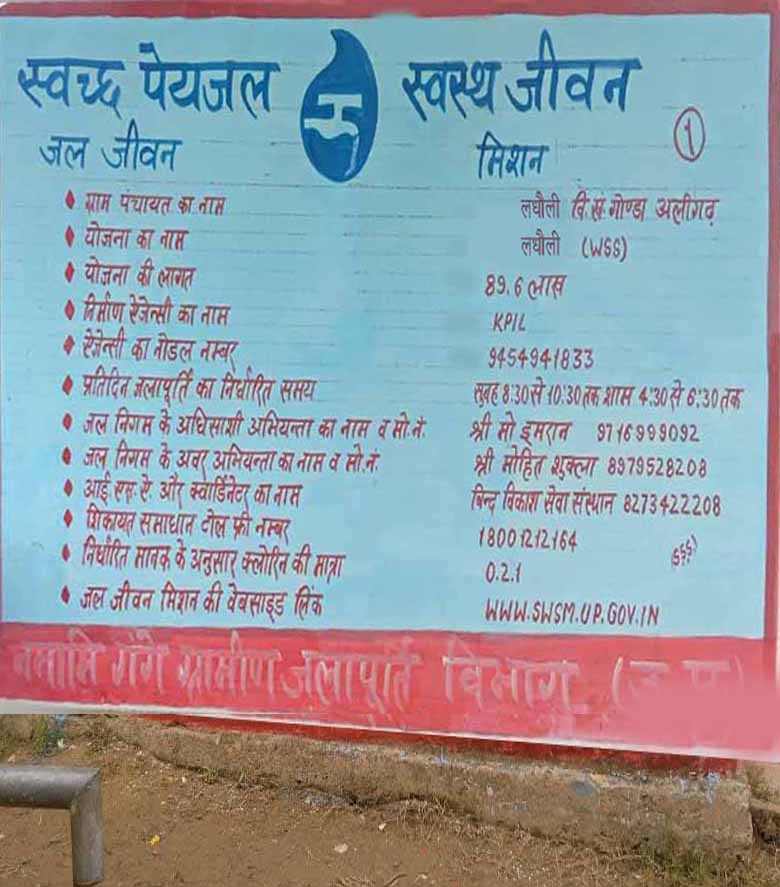 स्वच्छ पेयजल स्वस्थ जीवन
जल जीवन मिशन १
ग्राम पंचायत का नाम लधौली वि.खं. गोण्डा अलीगढ़
योजना का नाम लधौली (WSS)
योजना की लागत 89.6 लाख
निर्माण ऐजेन्सी का नाम KPIL
ऐजेन्सी का नोडल नम्बर 9454941833
प्रतिदिन जलापूर्ति का निर्धारित समय सुबह 8:30 से 10:30 तक शाम 4:30 से 6:30 तक
जल निगम के अधिसाशी अभियन्ता का नाम व मो.नं. श्री मो इमरान 9716999092
जल निगम के अवर अभियन्ता का नाम व मो.नं. श्री मोहित शुक्ला 8979528208
आई एस. ऐ. और क्वार्डिनेटर का नाम विन्द विकाश सेवा संस्थान 8273422208
शिकायत समाधान टोल फ्री नम्बर 18001212164
निर्धारित मानक के अनुसार क्लोरिन की मात्रा 0.2.1
जल जीवन मिशन की वेबसाइड लिंक WWW.SWSM.UP.GOV.IN
नमामि गंगे ग्रामीण जलापूर्ति विभाग (उ प्र)